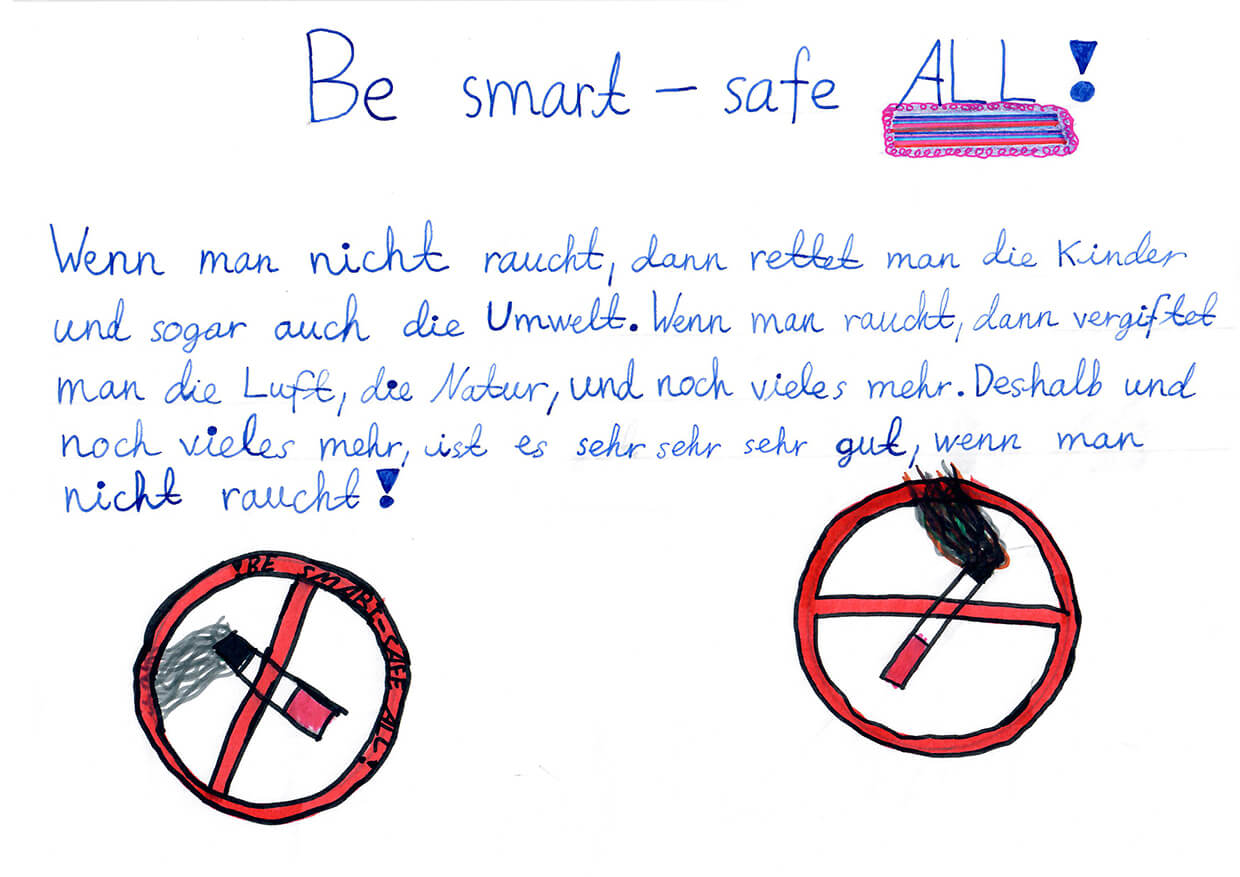 Be smart – safe ALL!
Wenn man nicht raucht, dann rettet man die Kinder
und sogar auch die Umwelt. Wenn man raucht, dann vergiftet
man die Luft, die Natur, und noch vieles mehr. Deshalb und
noch vieles mehr, ist es sehr sehr sehr gut, wenn man
nicht raucht!
!BE SMART-SAFE ALL!